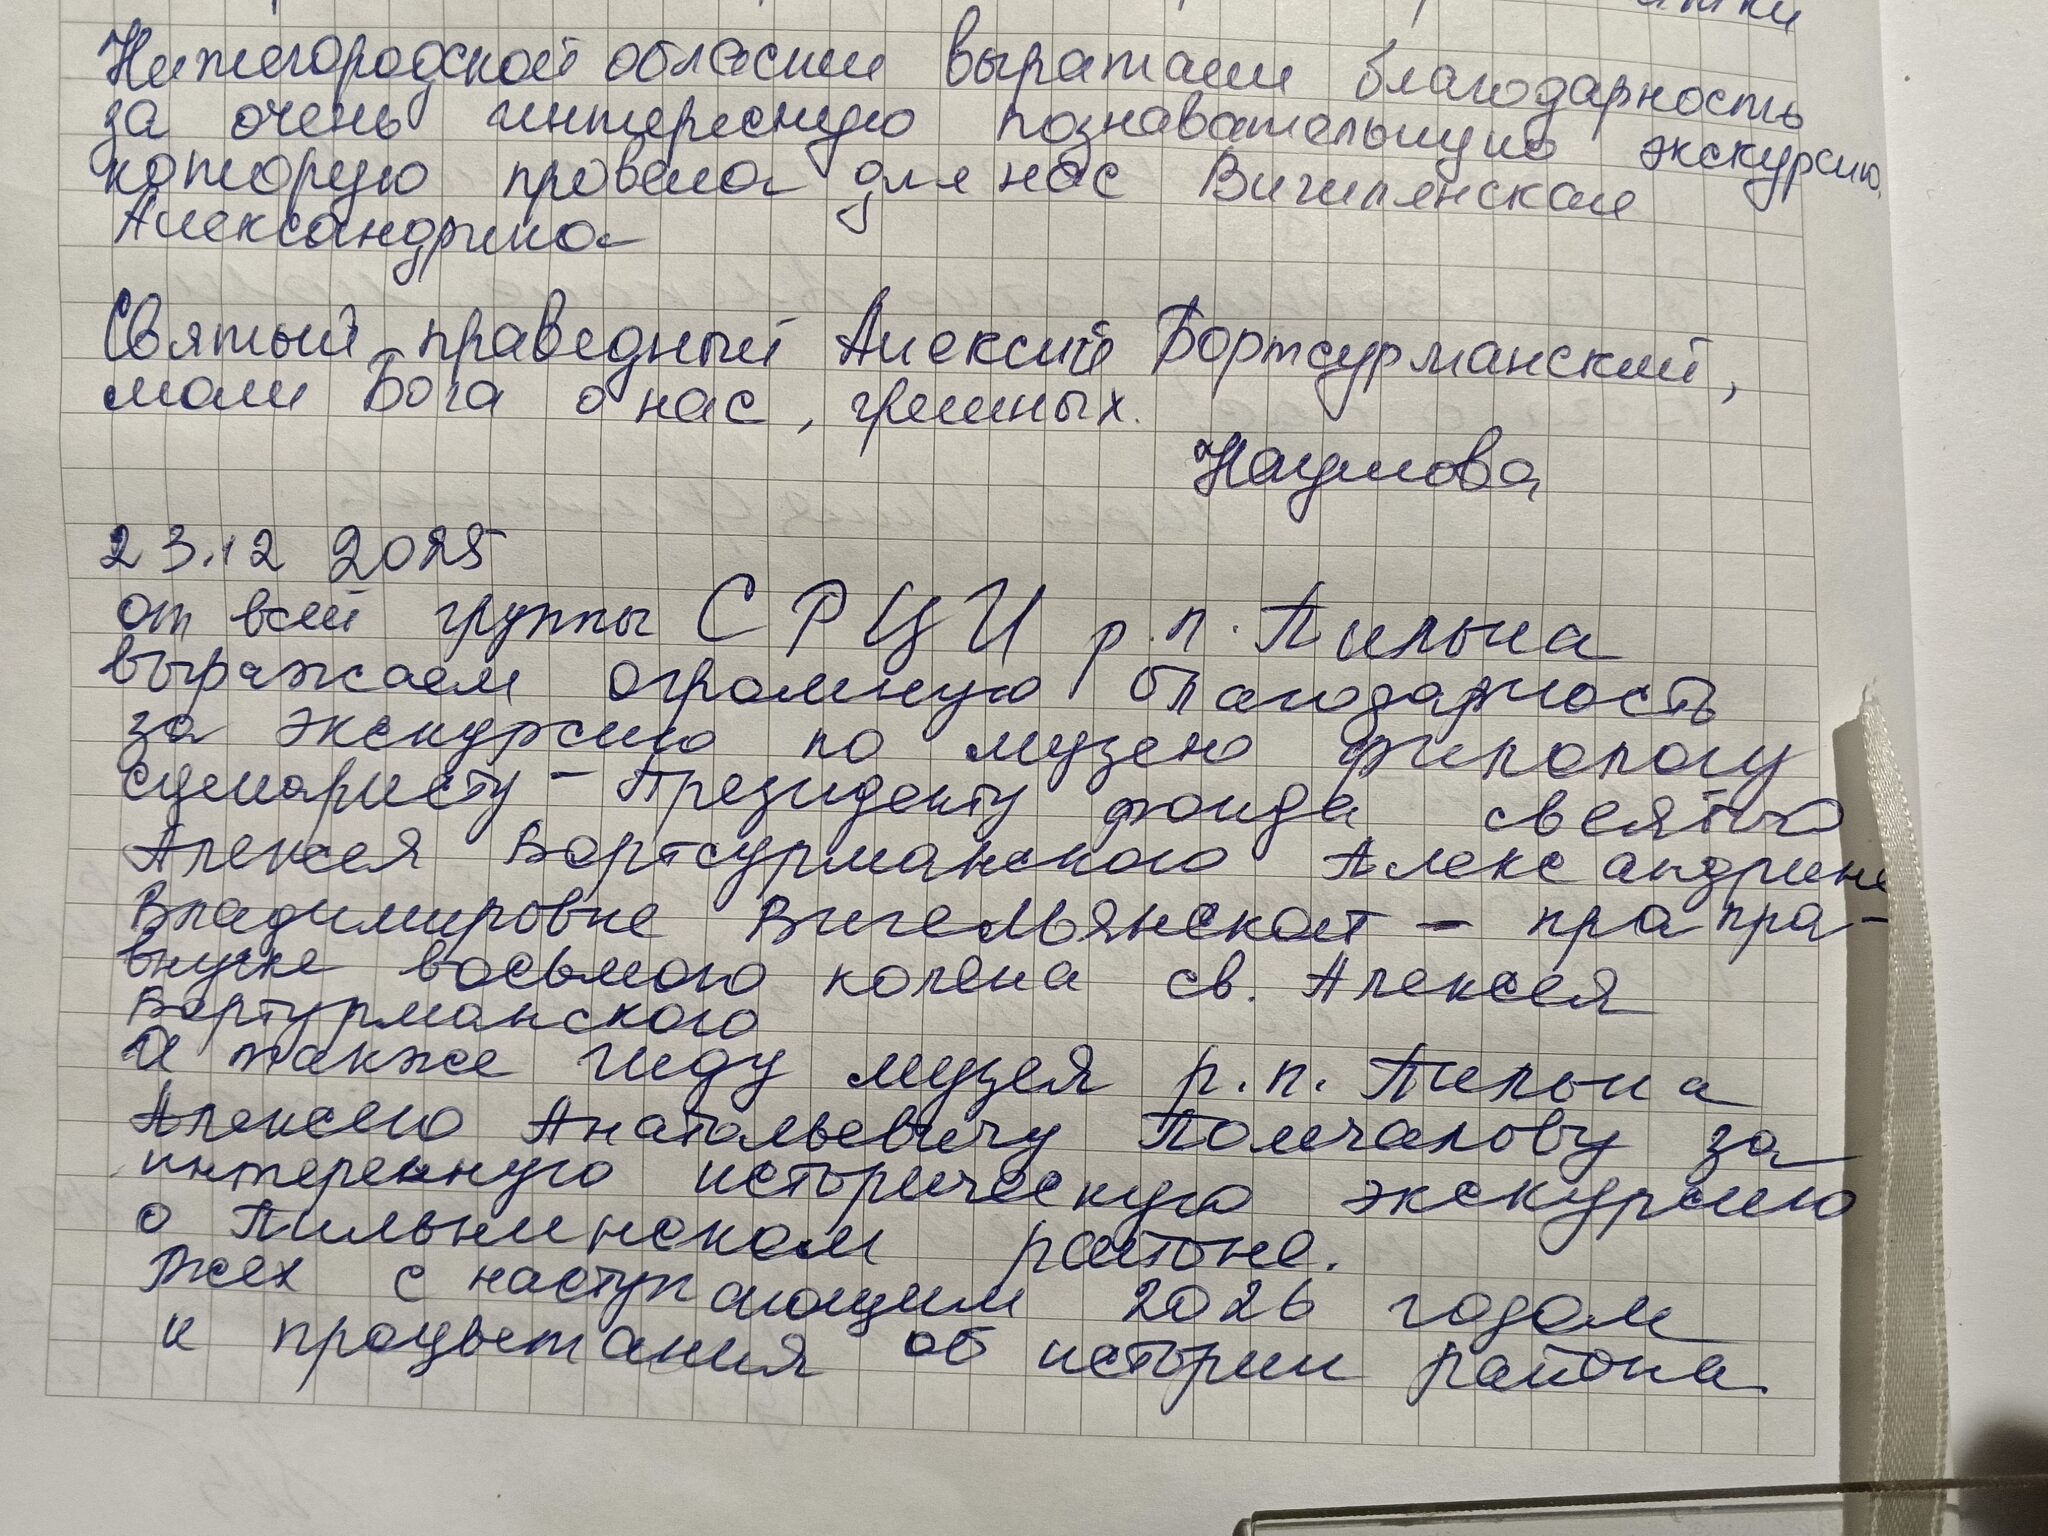 Нижегородской области выражаем благодарность
за очень интересную познавательную экскурсию,
которую провела для нас Вигилянская
Александрина
Святый праведный Алексий Бортсурманский,
моли Бога о нас, грешных.
Наумова
23.12 2025
от всей группы СРЦИ р.п. Пильна
выражаем огромную благодарность
за экскурсию по музею филологу
сценаристу - Президенту фонда святого
Алексея Бортсурманского Александрине
Владимировне Вигельянской - прапра-
внучке восьмого колена св. Алексея
Бортурманского
А также гиду музея р.п. Пильна
Алексею Анатольевичу Помчалову за
интеренную историческую экскурсию
о Пильнинском районе.
Всех с наступающим 2026 годом
и процветания об истории района